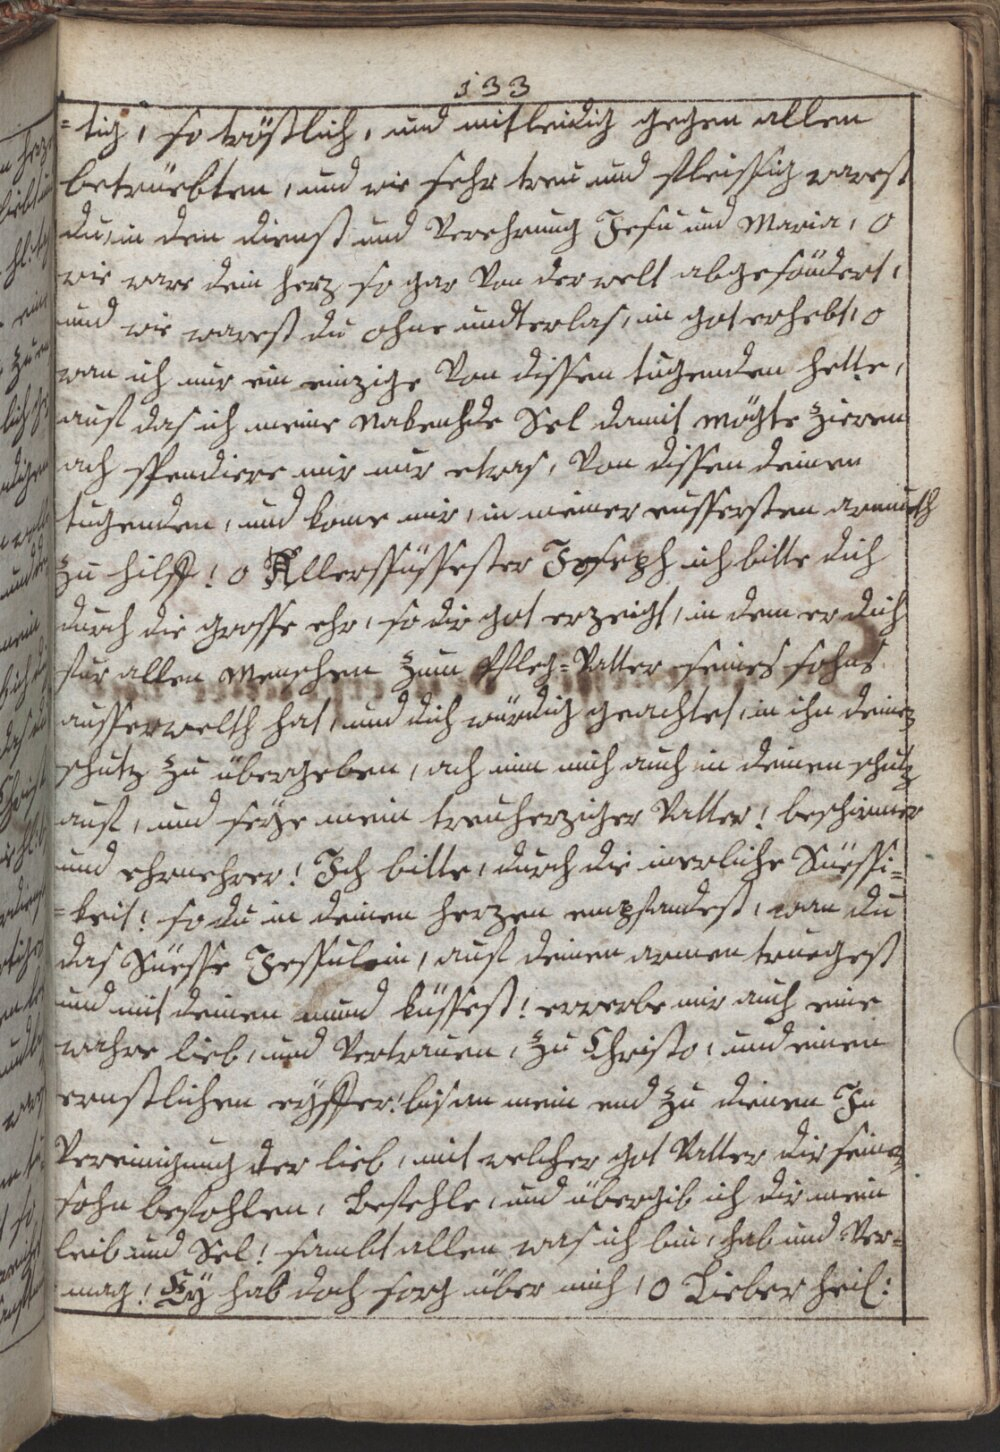 133
=tig, so tröstlich, und mitleidig gegen allen
betrüebten, und wie sehr treu und fleissig warest
du, in den dienst und Verehrung Jesu und Maria, O
wie ware dein herz so gar Von der welt abgesöndert,
und wie warest du ohne undterlas, in got erhebt, o
wan ich nur ein einzige Von dissen tugenden hette,
auf das ich meine Sel damit mögte zieren
ach spendiere mir nur etwas, Von dissen deinen
tugenden, und kome mir, in meiner eussersten armuth
zu hilff! o Allersüssester Joseph ich bitte dich
durch die grosse ehr, so dir got erzeigt, in dem er dich
für allen Menschen zum Pfleg=Vatter seines sohns
ausserwelth hat, und dich würdig geachtet, in ihn deinen
schutz zu übergeben, ach nim mich auch in deinen schutz
auf, und seÿe mein treuherziger Vatter! beschirmer
und ehrnehrer! Ich bitte, durch die inerliche Süessi=
=keit! so du in deinen herzen empfandest, wan du
das Süesse Jessulein, auf deinen armen truegest
und mit deinen mund küssest! erwerbe mir auch eine
wahre lieb, und Vertrauen, zu Christo, und einen
ernstlichen eÿffer! bis an mein end zu dienen In
Vereinigung der lieb, mit welcher got Vatter dir seinen
sohn befohlen, Befehle, und übergib ich dir mein
leib und Sel! sambt allen was ich bin, hab und Ver=
mag! Eÿ hab doch sorg über mich, O Lieber heil: